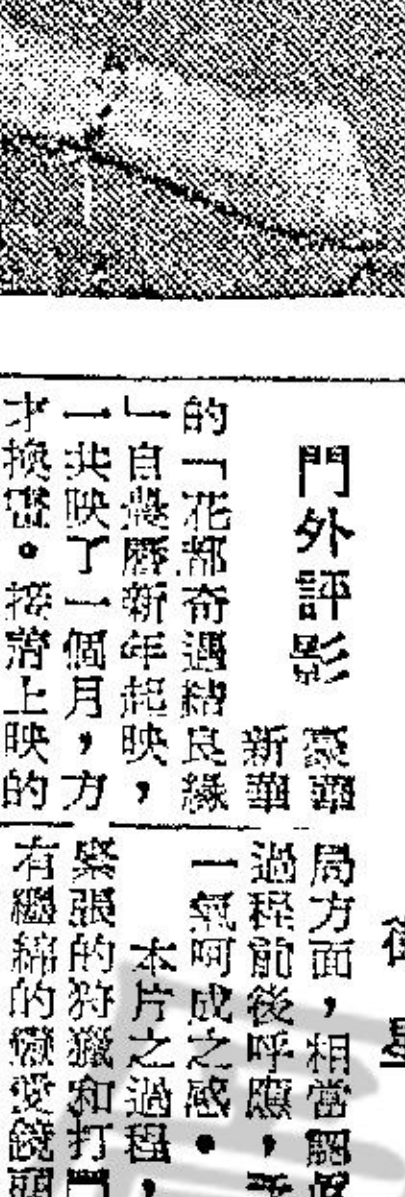 門外評影
豪華
新華
的「花都奇遇結良緣
」自農曆新年起映，
一共映了一個月，方
才換畫。接着上映的
局方面，相當
過程前後呼應，
一氣呵成之感。
本片之過程，
緊張的狩獵和打鬥
有纏綿的戀愛鏡頭